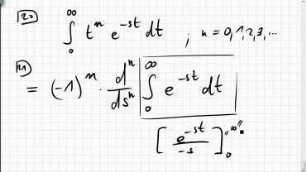 20
∫₀^∞ tⁿ e^{-st} dt ; n = 0,1,2,3,...
21
= (-1)ⁿ · dⁿ/dsⁿ ∫₀^∞ e^{-st} dt
[e^{-st}/-s]₀^{"∞"}